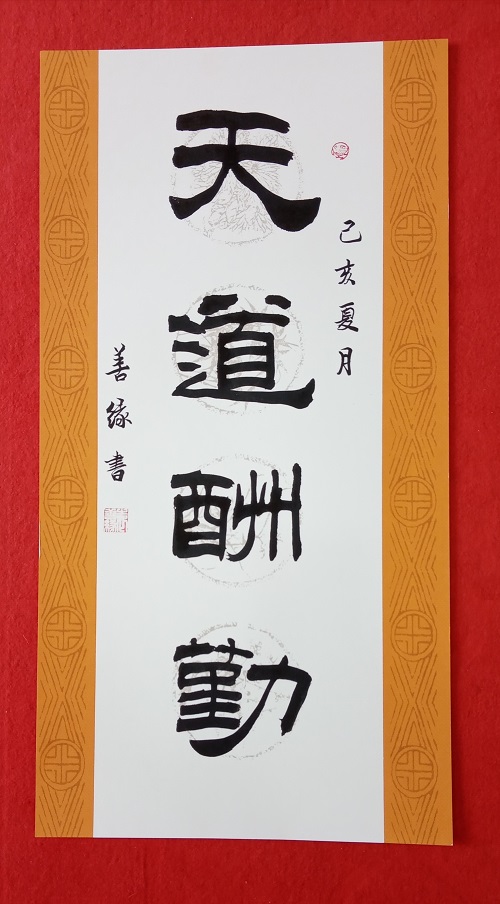 己亥夏月
天道酬勤
善缘书